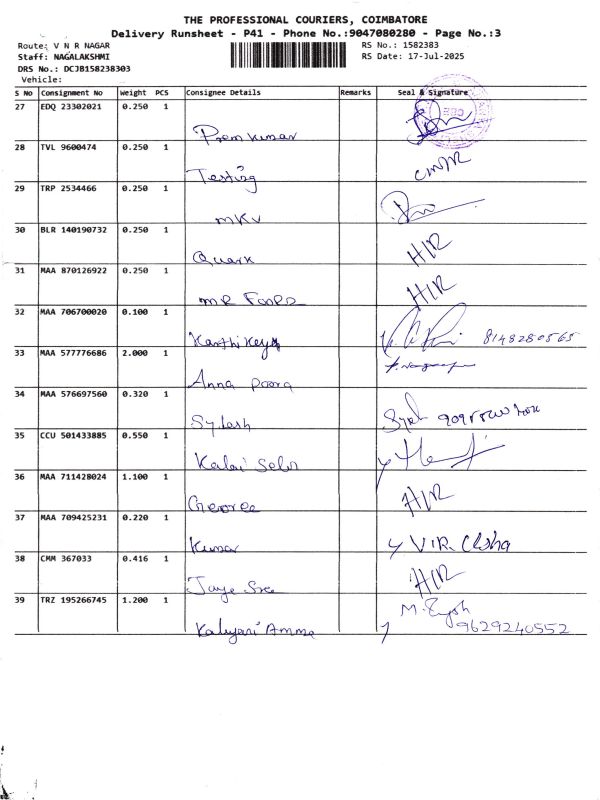 THE PROFESSIONAL COURIERS, COIMBATORE
Delivery Runsheet - P41 - Phone No.:9047080280 - Page No.:3
Route: V N R NAGAR RS No.: 1582383
Staff: NAGALAKSHMI RS Date: 17-Jul-2025
DRS No.: DCJB158238303
Vehicle:
S No Consignment No Weight PCS Consignee Details Remarks Seal & Signature
27 EDQ 23302021 0.250 1
Prem kumar
28 TVL 9600474 0.250 1
Testing
29 TRP 2534466 0.250 1
MKV
30 BLR 140190732 0.250 1 H/R
Quark
31 MAA 870126922 0.250 1 H/R
MR Foods
32 MAA 706700020 0.100 1
Karthikeya 8148280565
33 MAA 577776686 2.000 1
Anna poorq
34 MAA 576697560 0.320 1
Sylesh
35 CCU 501433885 0.550 1
Kalai Selvi
36 MAA 711428024 1.100 1 H/R
George
37 MAA 709425231 0.220 1
Kumar
38 CMM 367033 0.416 1 H/R
Jaye Sree
39 TRZ 195266745 1.200 1
Kalyani Amma 9629240552